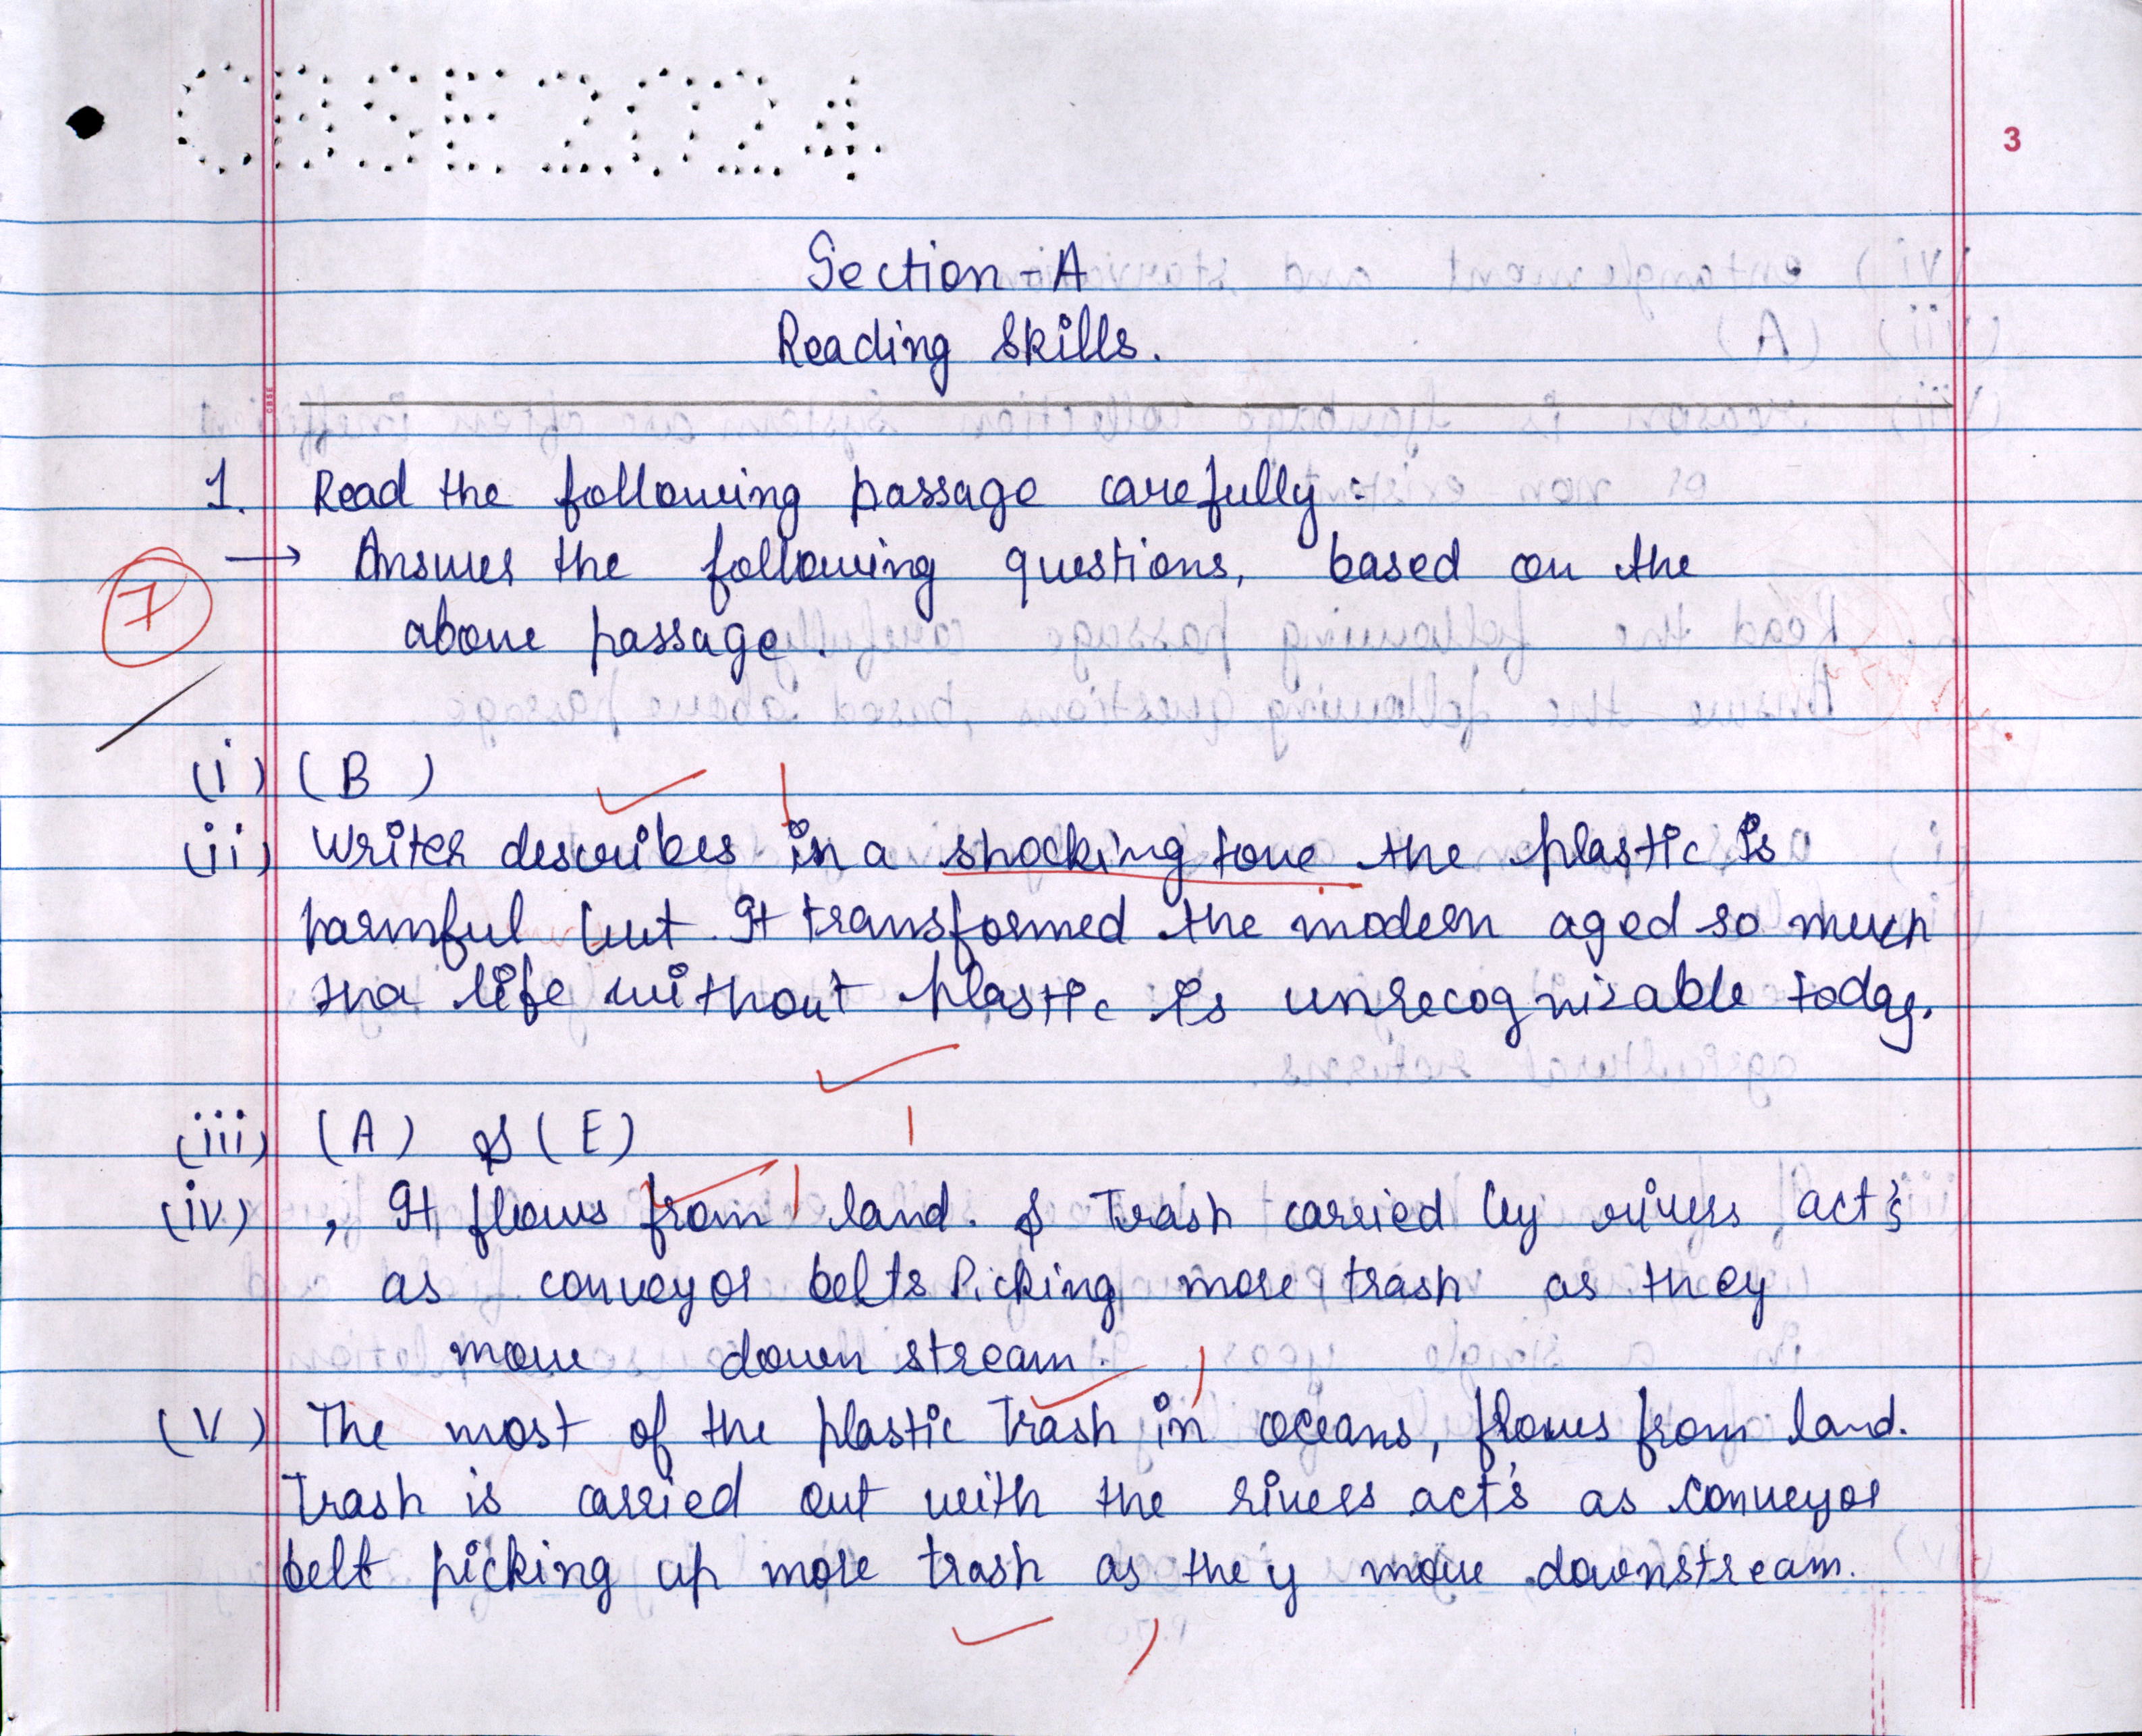 CBSE 2024
3
Section - A
Reading Skills.
1. Read the following passage carefully :
→ Answer the following questions, based on the
above passage.
7
(i) (B)
(ii) Writer describes in a shocking tone the plastic is
harmful but It transformed the modern aged so much
tha life without plastic is unrecognizable today.
(iii) (A) & (E)
(iv) , It flows from land. & Trash carried by rivers act's
as conveyor belts Picking more trash as they
move down stream.
(v) The most of the plastic Trash in oceans, flows from land.
Trash is carried out with the rivers act's as conveyor
belt picking up more trash as they move downstream.